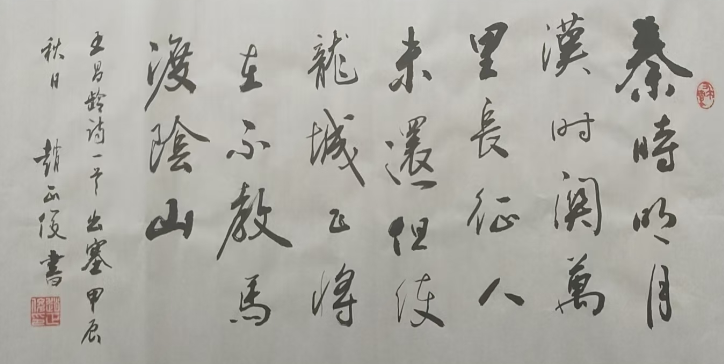 秦時明月
漢时関萬
里長征人
未還但使
龍城飞将
在不教馬
渡陰山
王昌龄诗一首出塞甲辰
秋日 趙正俊書